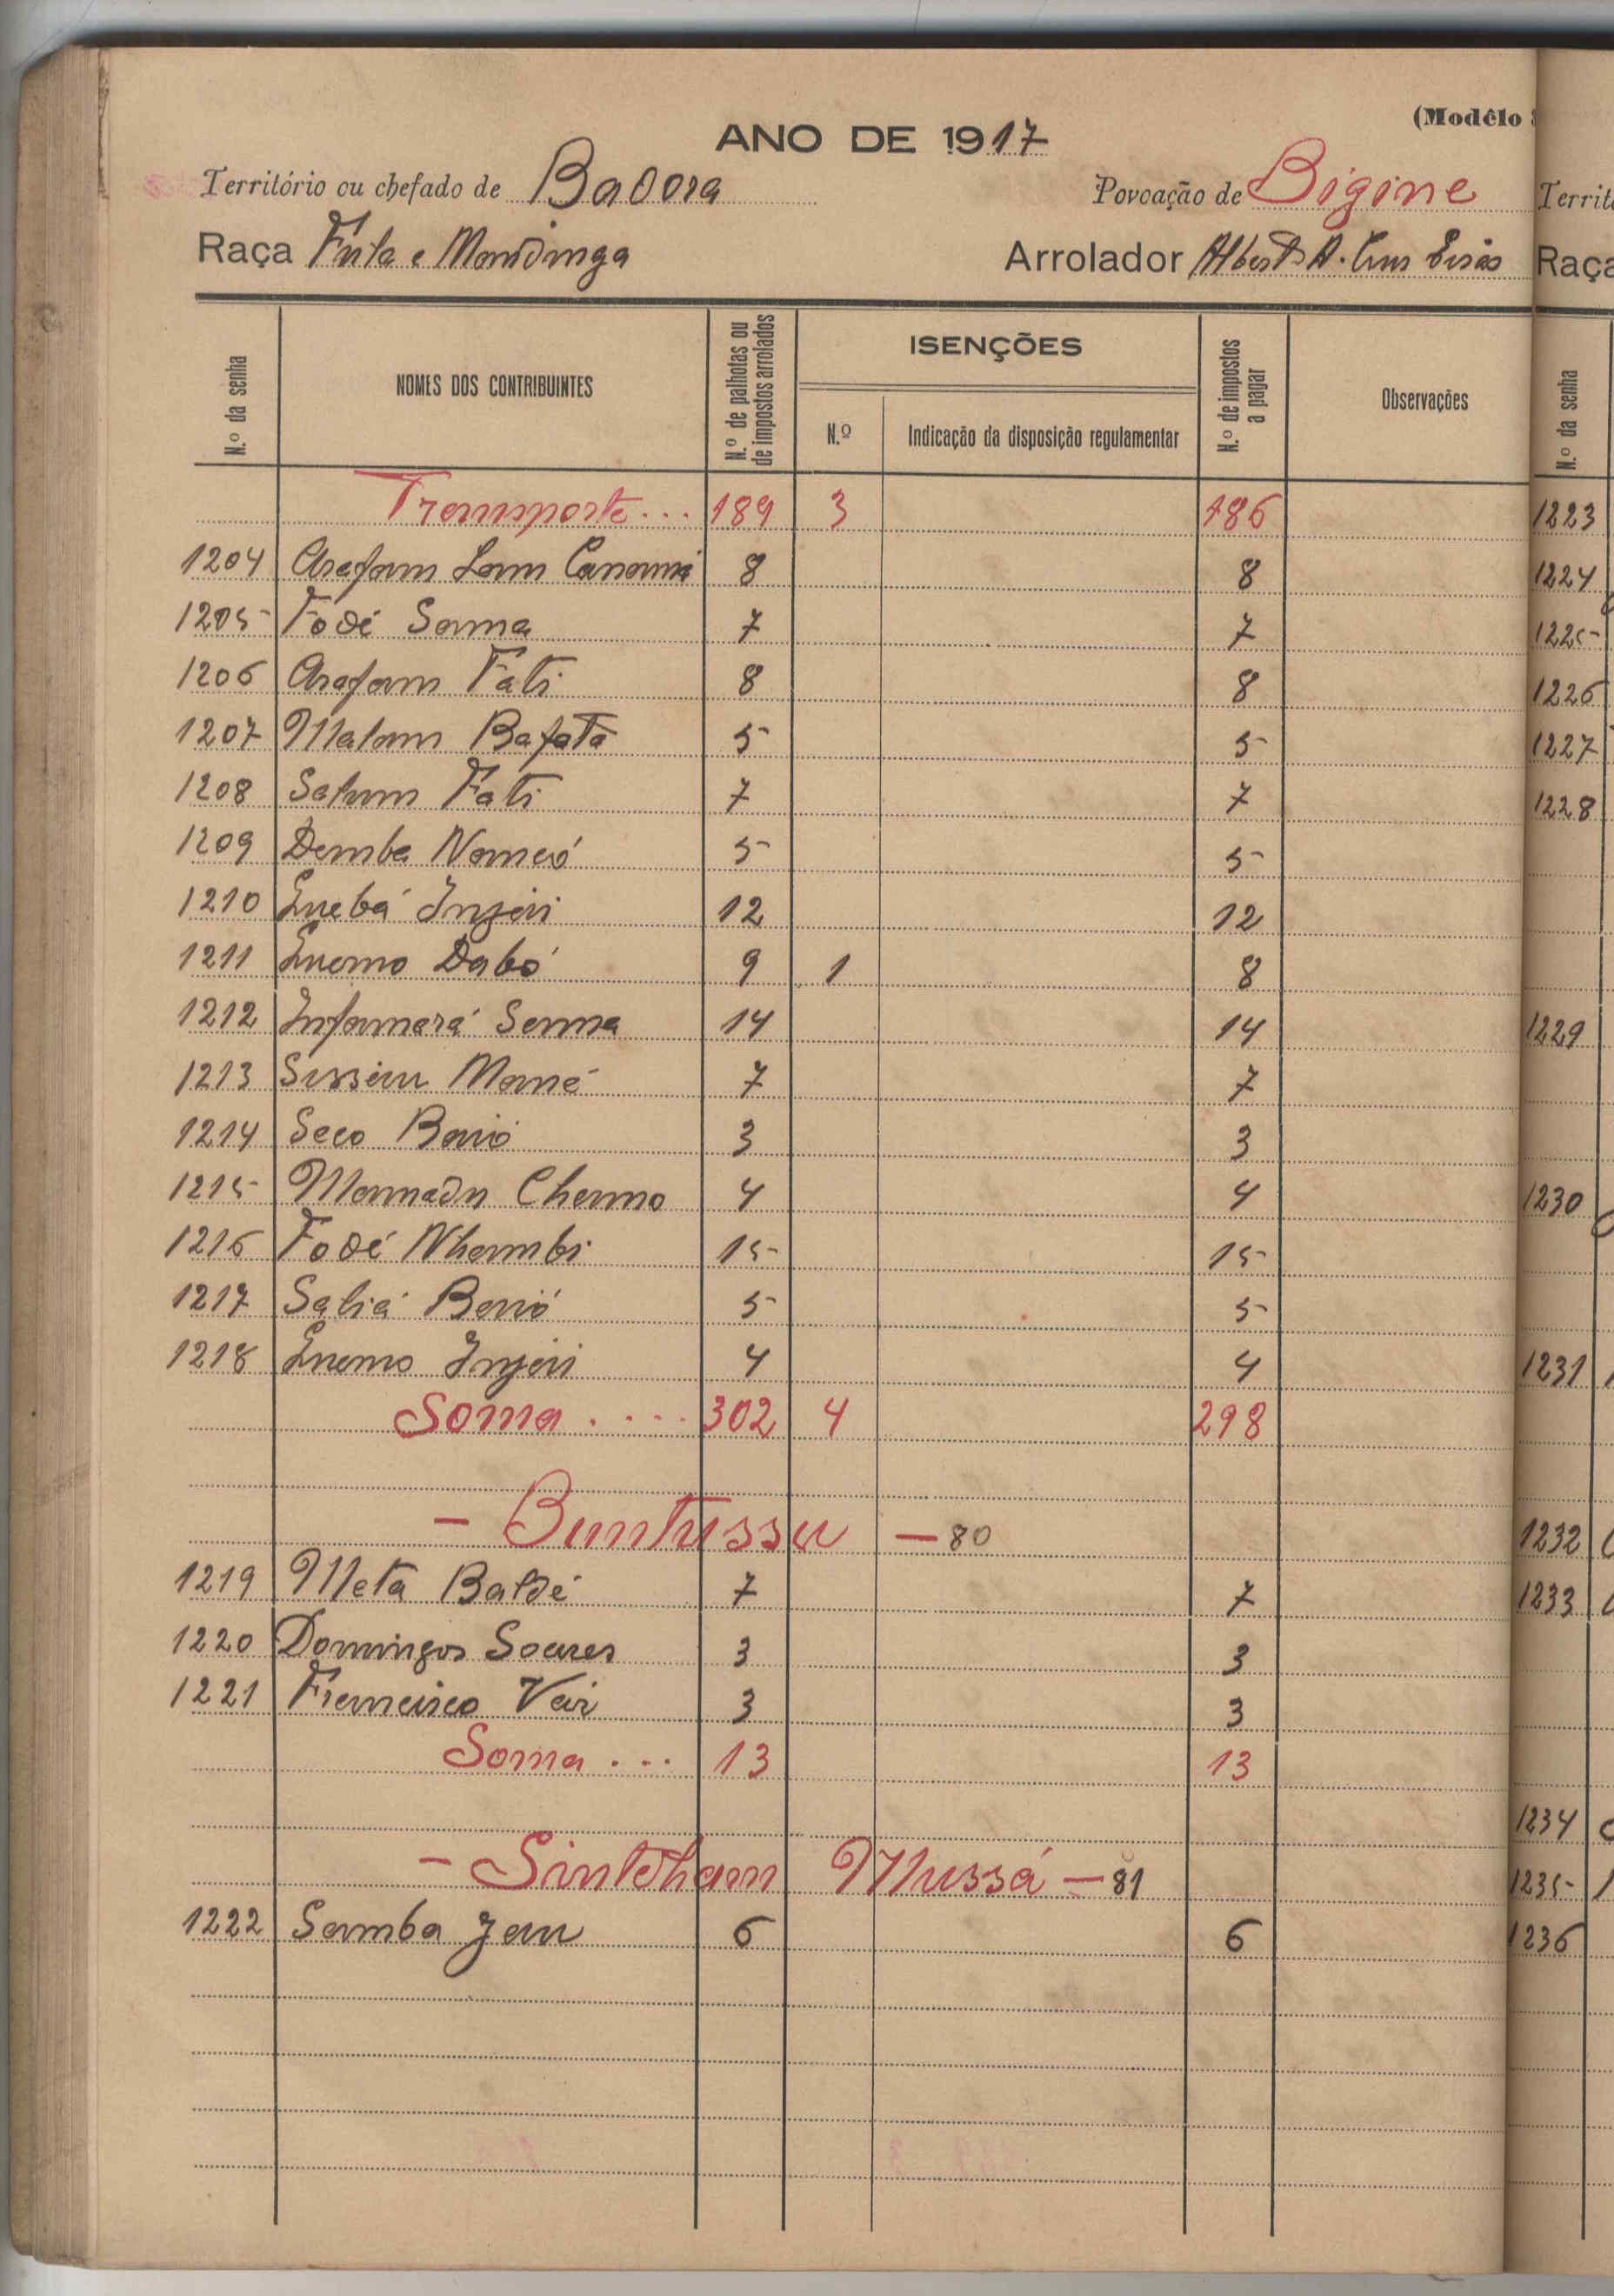 (Modêlo
ANO DE 1917
Território ou chefado de Badora Povoação de Bigine
Raça Fula e Mandinga Arrolador Albert A. Cruz
N.º da senha
NOMES DOS CONTRIBUINTES
N.º de palhotas ou de impostos arrolados
ISENÇÕES
N.º
Indicação da disposição regulamentar
N.º de impostos a pagar
Observações
Transporte... 189 3 186
1204 Arafam Lam Canamé 8 8
1205 Fodé Sama 7 7
1206 Arafam Fati 8 8
1207 Malam Bafatá 5 5
1208 Salum Fati 7 7
1209 Demba 5 5
1210 Quebá Injai 12 12
1211 Quemo Dabó 9 1 8
1212 Infamará Sama 14 14
1213 Mané 7 7
1214 Seco Baió 3 3
1215 Mamadu Chermo 4 4
1216 Fodé Nhambi 15 15
1217 Saliá Baió 5 5
1218 Quemo Injai 4 4
Soma.... 302 4 298
- Buntussu - 80
1219 Meta Baldé 7 7
1220 Domingos Soares 3 3
1221 Francisco Vaz 3 3
Soma... 13 13
- Sintcham Mussá - 81
1222 Samba Jau 6 6
Territ
Raça
N.º da senha
1223
1224
1225
1226
1227
1228
1229
1230
1231
1232
1233
1234
1235
1236